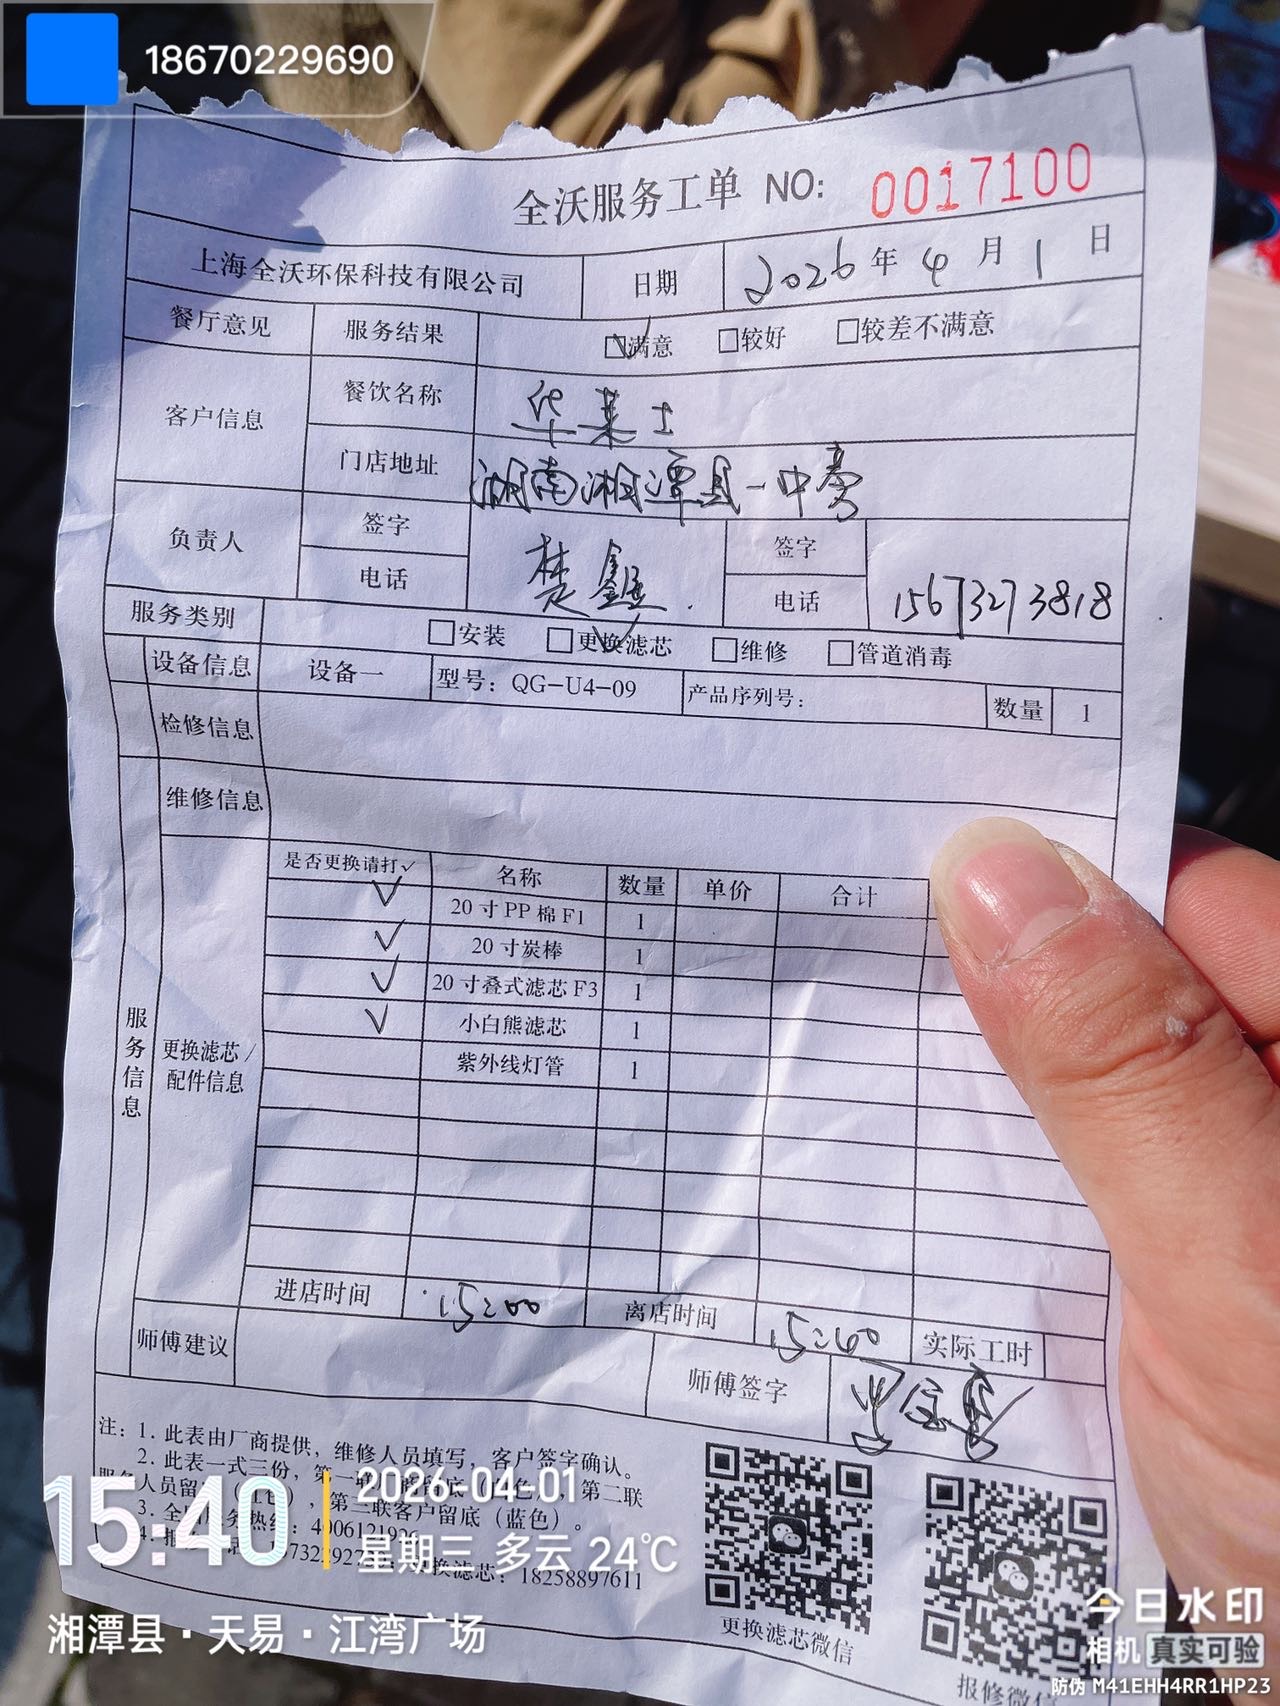 18670229690
全沃服务工单 NO: 0017100
上海全沃环保科技有限公司 日期 2026年4月1日
餐厅意见 服务结果 ☑满意 □较好 □较差不满意
客户信息 餐饮名称 华莱士
门店地址 湖南湘潭县一中旁
负责人 签字 楚鑫 签字
电话 电话 15673273818
服务类别 □安装 ☑更换滤芯 □维修 □管道消毒
设备信息 设备一 型号：QG-U4-09 产品序列号： 数量 1
检修信息
维修信息
服务信息
更换滤芯/配件信息
是否更换请打✓ 名称 数量 单价 合计
✓ 20寸PP棉F1 1
✓ 20寸炭棒 1
✓ 20寸叠式滤芯F3 1
✓ 小白熊滤芯 1
紫外线灯管 1
进店时间 15:00 离店时间 15:40 实际工时
师傅建议 师傅签字
注：1. 此表由厂商提供，维修人员填写，客户签字确认。
2. 此表一式三份，第一联 底 第二联
人员留 ，第三联客户留底（蓝色）。
3. 全 服务热线：4006121926
4. 换滤芯：18258897611
更换滤芯微信
报修微信
15:40
2026-04-01
星期三 多云 24℃
湘潭县·天易·江湾广场
今日水印
相机 真实可验
防伪 M41EHH4RR1HP23